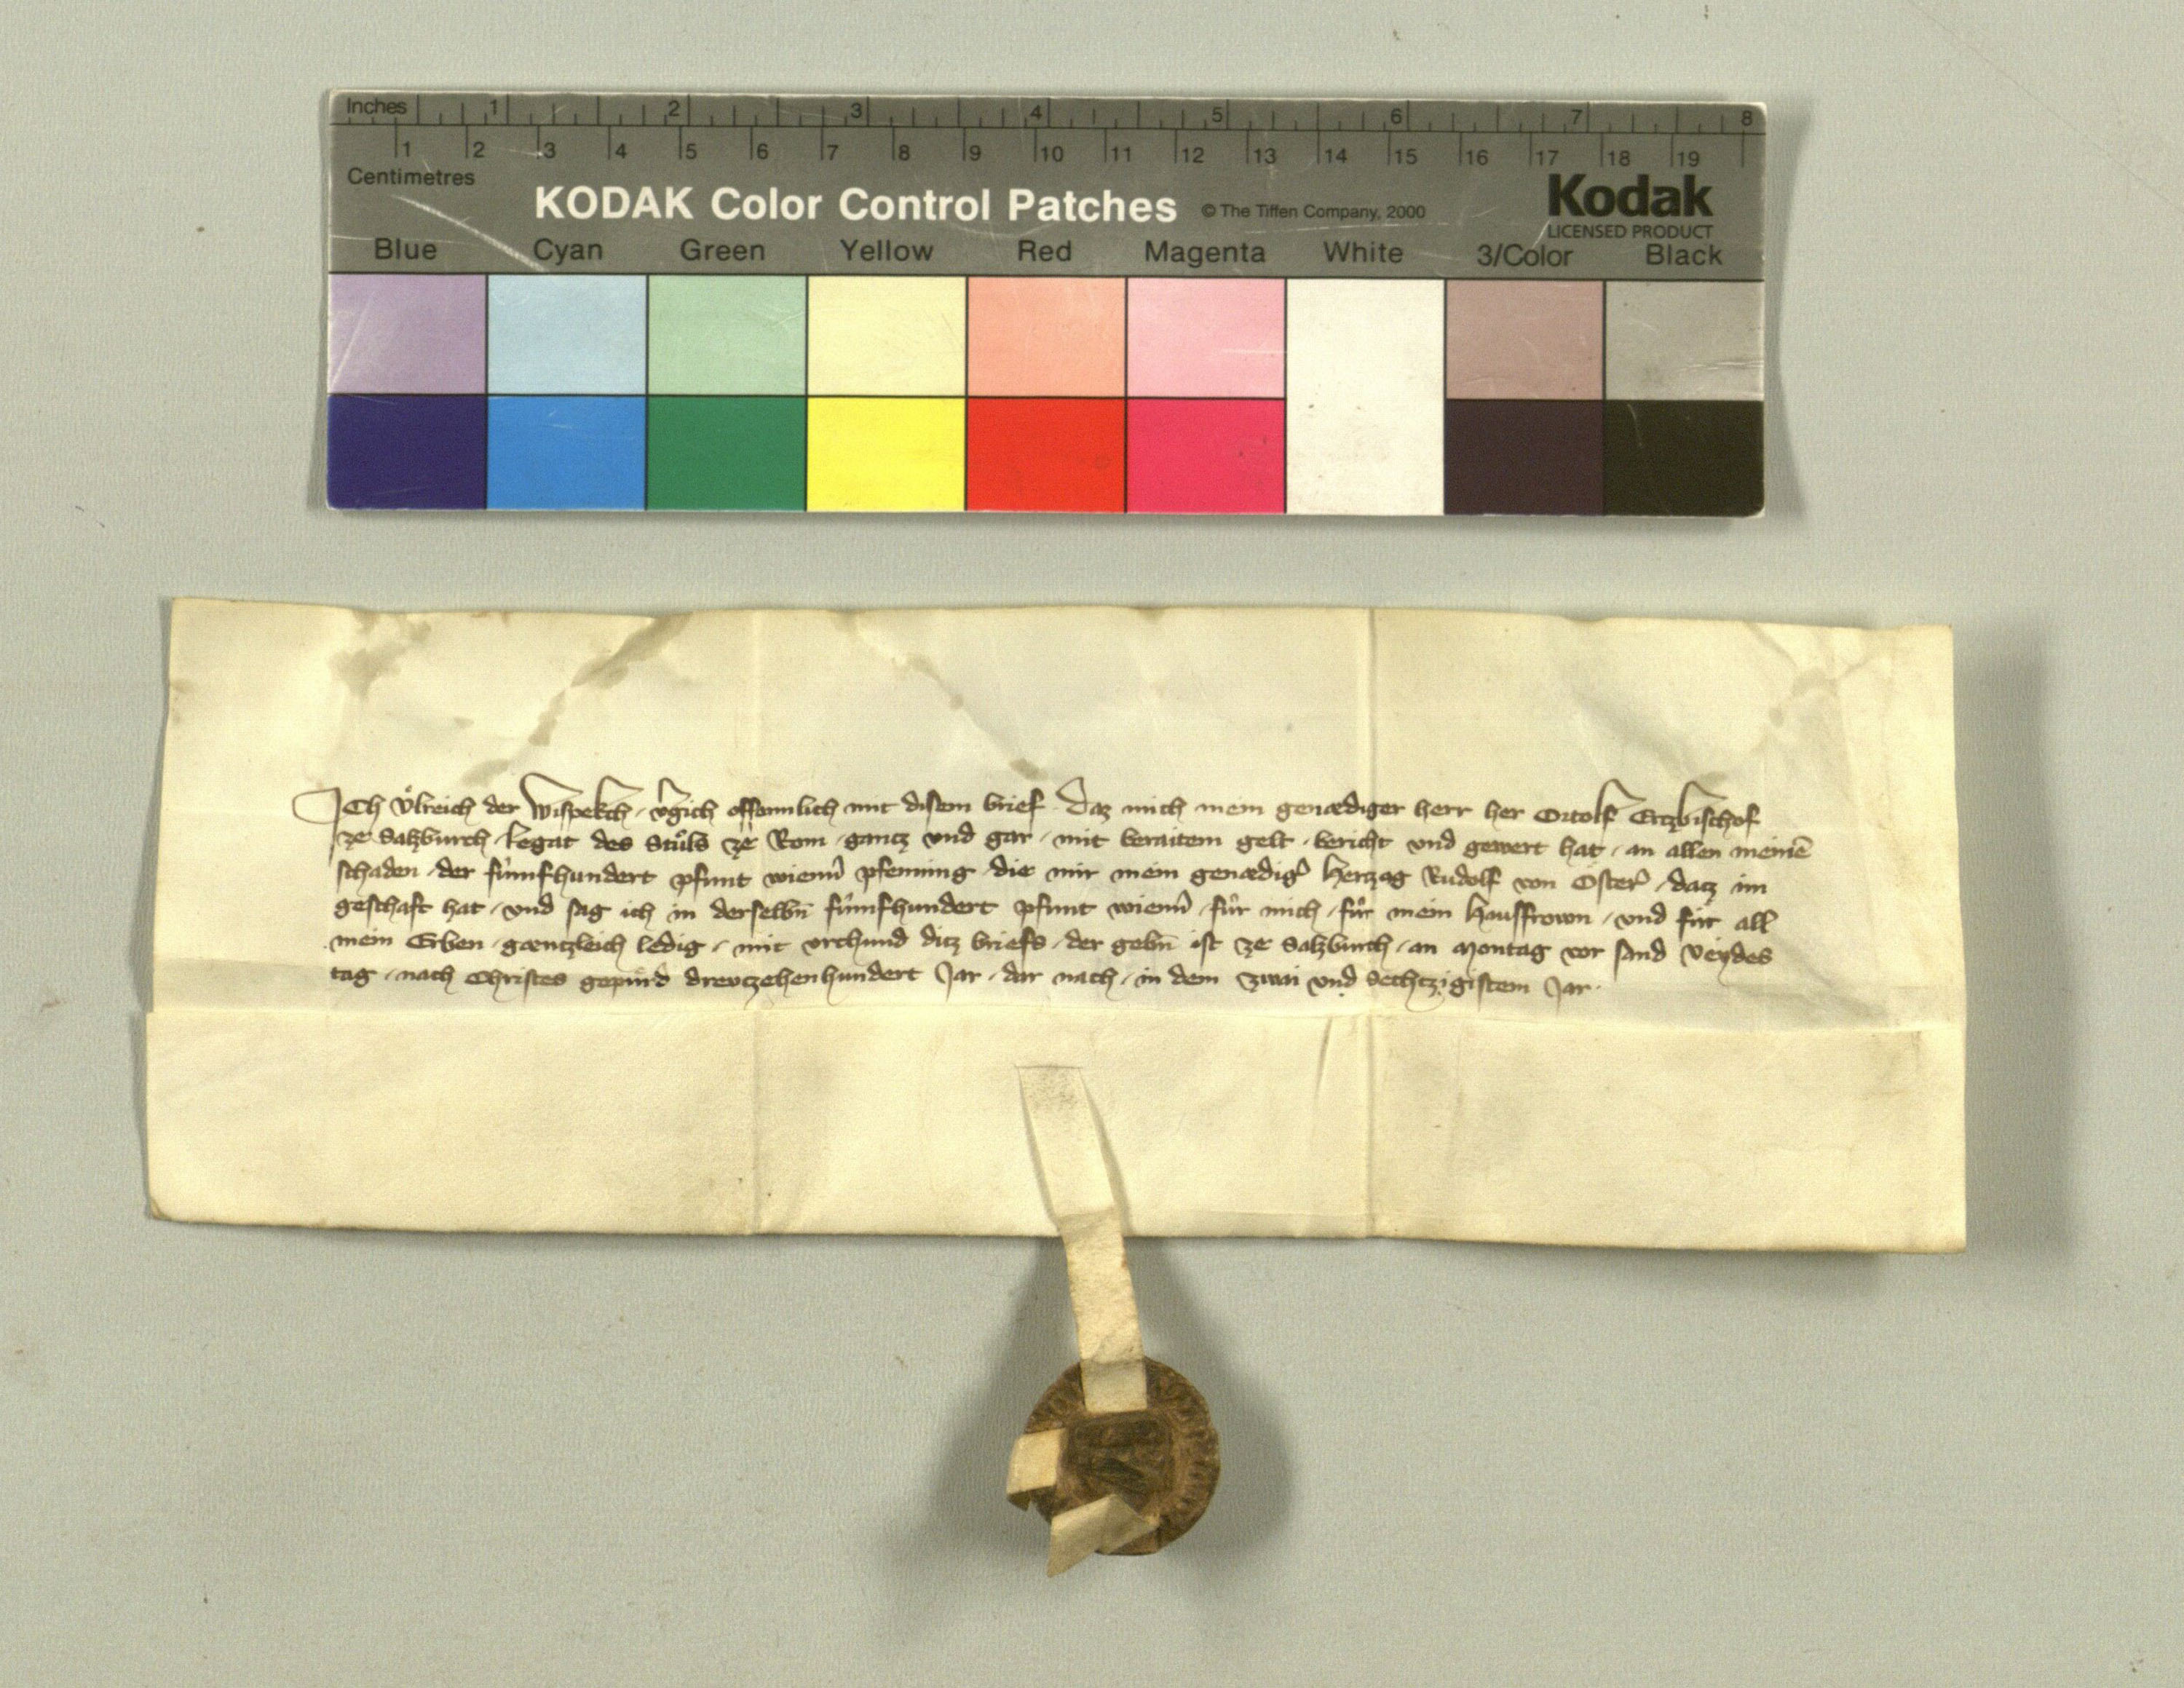 Inches 1 2 3 4 5 6 7 8
1 2 3 4 5 6 7 8 9 10 11 12 13 14 15 16 17 18 19
Centimetres
KODAK Color Control Patches © The Tiffen Company, 2000 Kodak
LICENSED PRODUCT
Blue Cyan Green Yellow Red Magenta White 3/Color Black
ICh Vͦlreich der Wispekch / v̾gich offennlich mit disem brief Daz mich mein genædiger herr her Ortolf Ertzbischof
ze Salzburch / Legat des Stuͦls ze Rom / gancz vnd gar / mit beraitem gelt / bericht vnd gewert hat / an allen meinē
schaden / der fuͤmfhundert pfunt wienn̾ pfenning die mir mein genædig̾ Hertzog Rudolf von Oster̾ / datz im
geschaft hat / vnd sag ich in derselbn̄ fuͤmfhundert pfunt wienn̾ / fuͤr mich / fuͤr mein Hausfrown / vnd fuͤr all
mein Erben / gæntzleich ledig / mit vrchund ditz briefs / der gebn̄ ist ze Salzburch / an Montag vor sand Veydes
tag / nach Christes gepuͤrd dreutzehenhundert Jar / dar nach / in dem zwai vnd Sechtzigistem Jar.